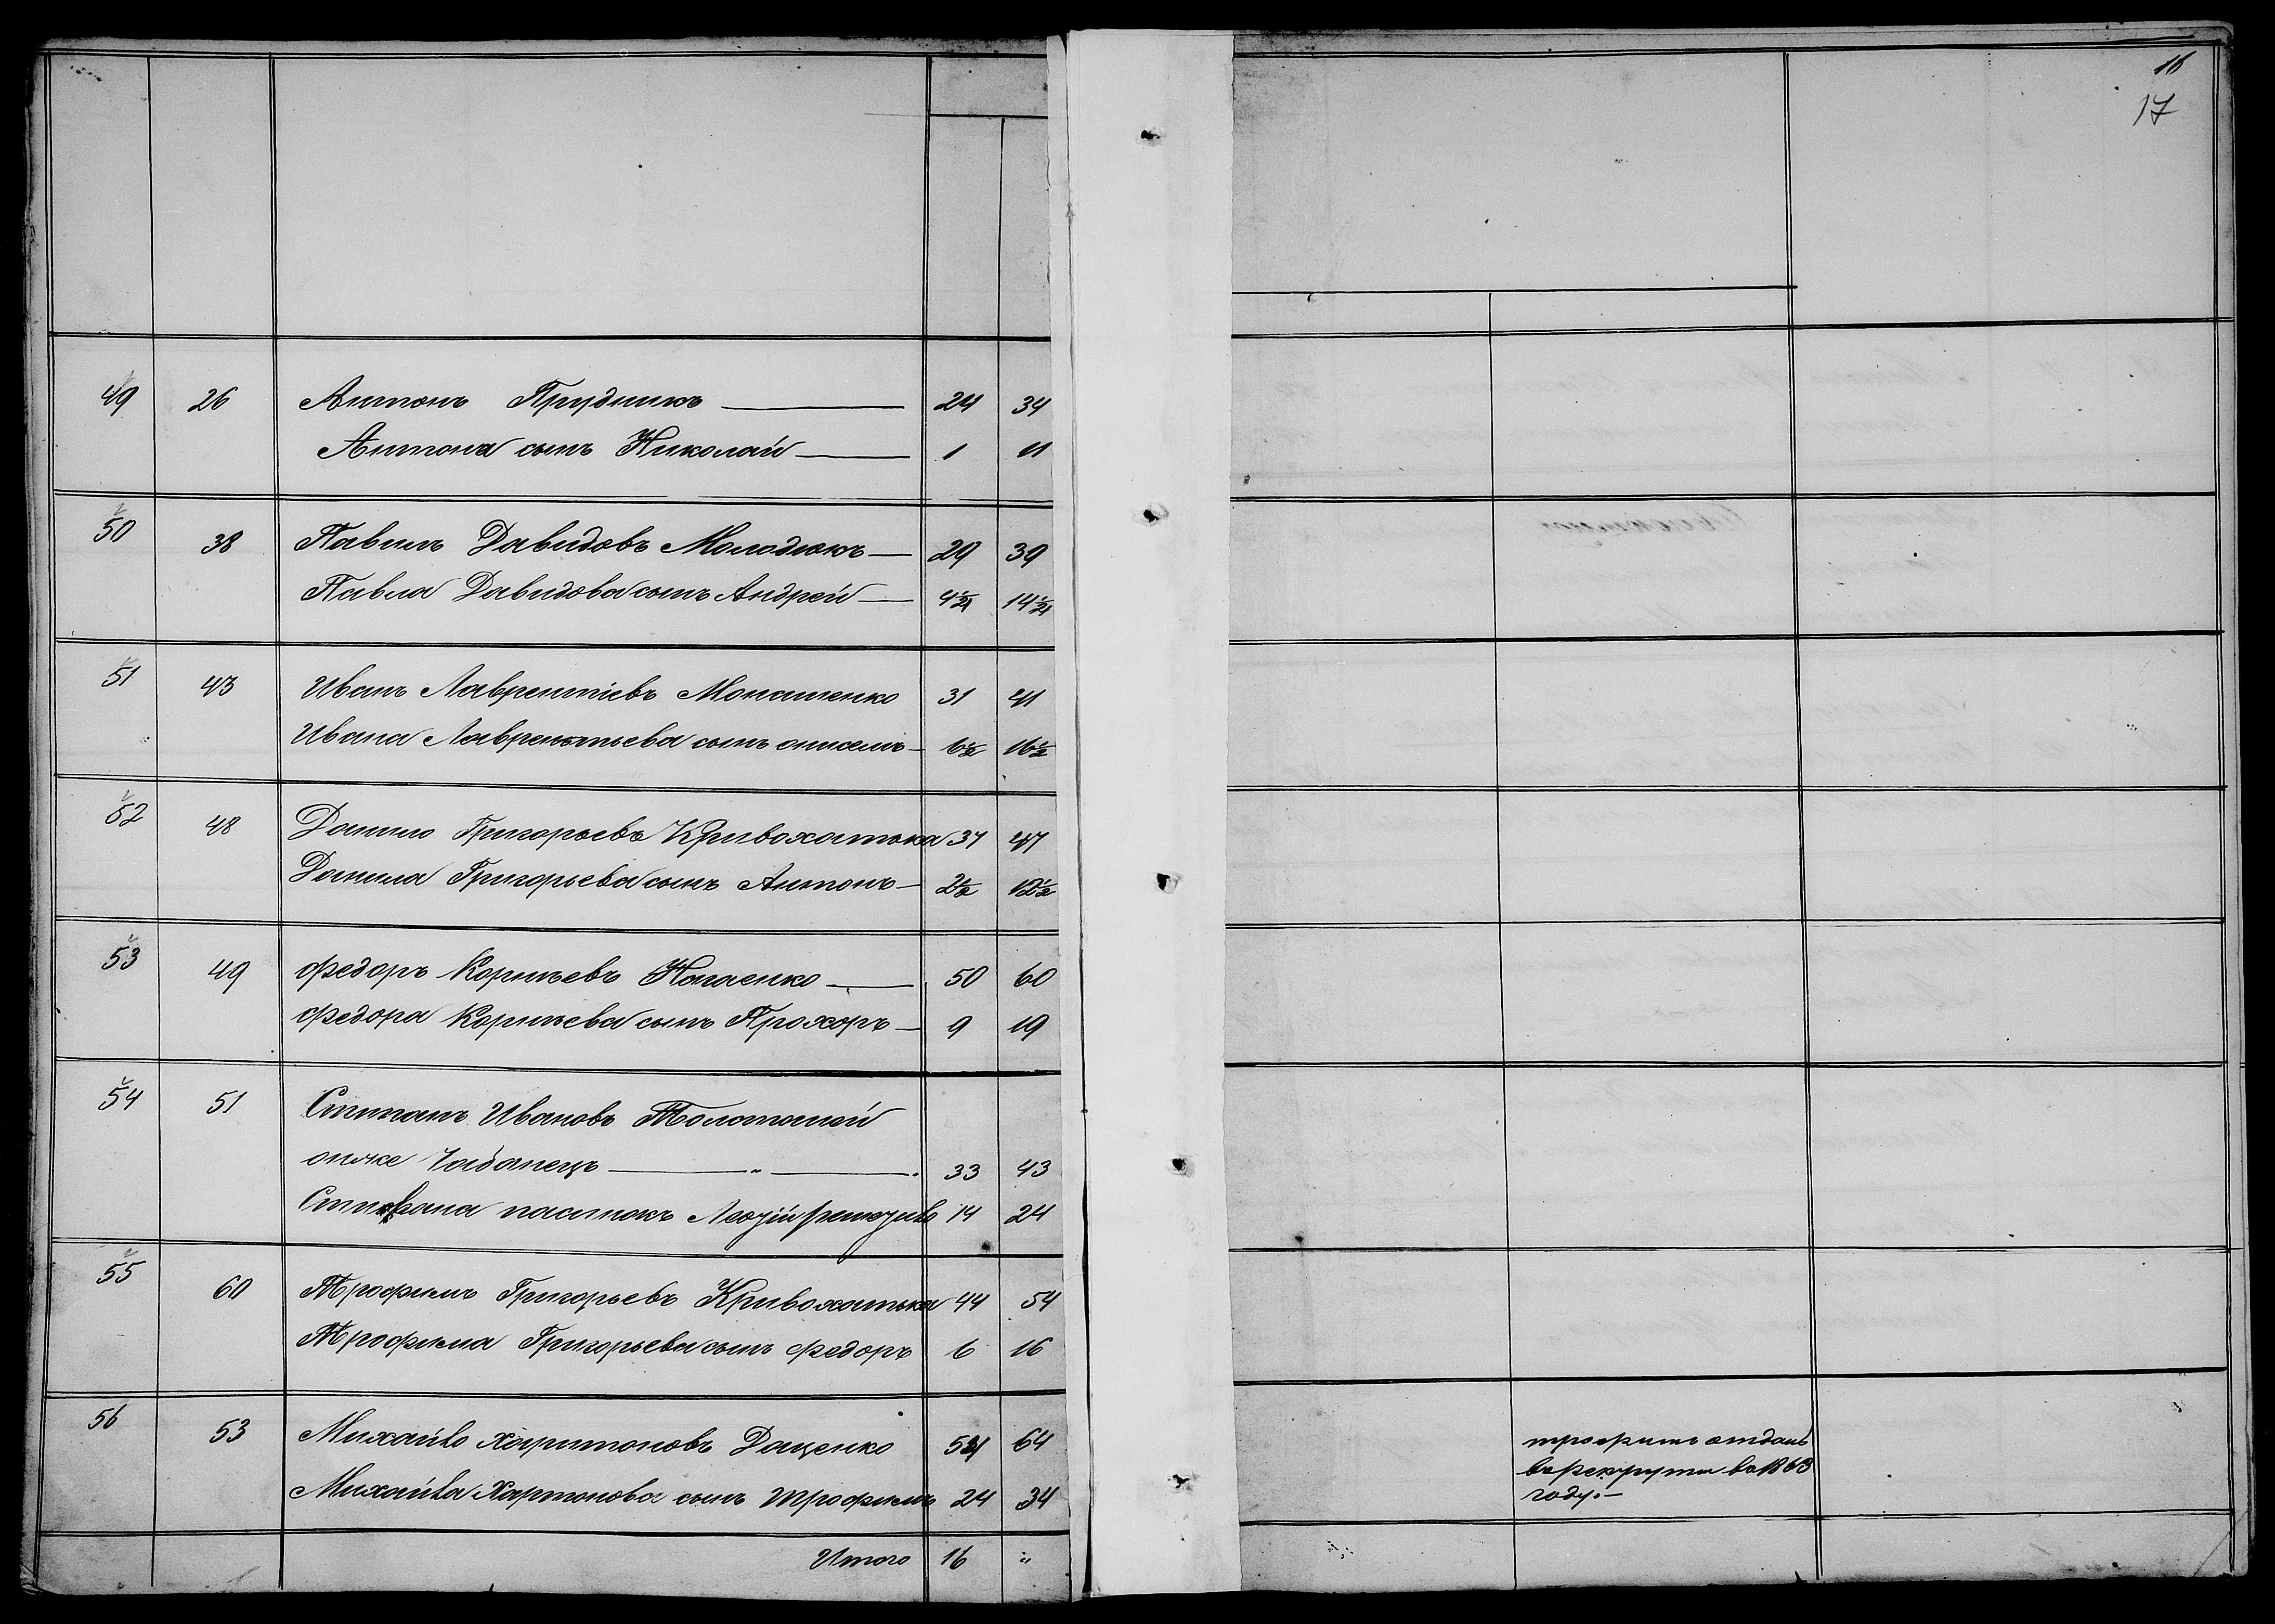 16
17
49 26 Антонъ Прудникъ 24 34
Антона сынъ Николай 1 11
50 38 Павелъ Давидовъ Молодюкъ 29 39
Павла Давидова сынъ Андрей 4½ 14½
51 43 Иванъ Лаврентіевъ Монашенко 31 41
Ивана Лаврентьева сынъ онисемъ 6½ 16½
52 48 Данило Григорьевъ Кривохатька 37 47
Данила Григорьева сынъ Антонъ 2½ 12½
53 49 федоръ Корнѣевъ Нагаенко 50 60
федора Корнѣева сынъ Прохоръ 9 19
54 51 Степанъ Ивановъ
онже Чабанецъ 33 43
Степана пасинокъ 14 24
55 60 Трофимъ Григорьевъ Кривохатька 44 54
Трофима Григорьева сынъ федоръ 6 16
56 53 Михайло Харитоновъ Даценко 54 64
Михайла Харитонова сынъ трофимъ 24 34
трофимъ отданъ
врекруты въ 1863
году.—
Итого 16 "